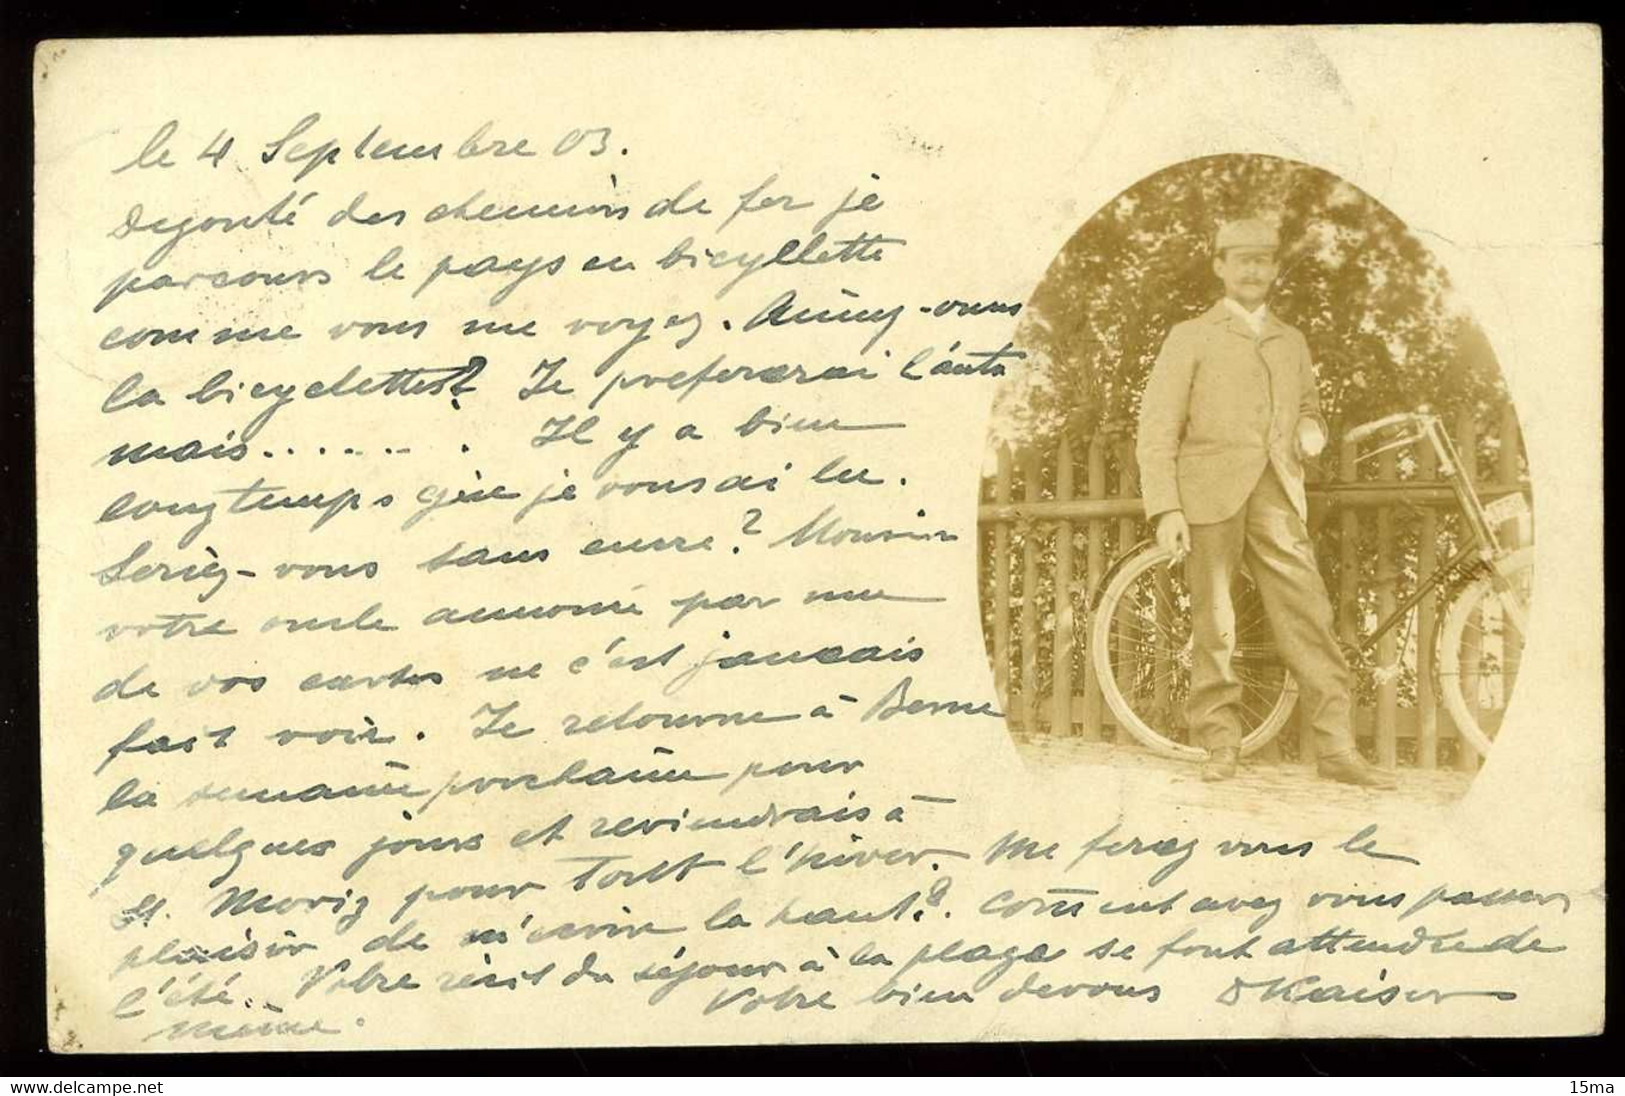 le 4 Septembre 03.
Degouté des chemins de fer je
parcours le pays en bicyllette
comme vous me voyez. Aimez-vous
la bicyclette? Je prefererai l'auto
mais....... Il y a bien
longtemps que je vous ai lu.
Seriez-vous sans encre? Monsieur
votre oncle annoncé par une
de vos cartes ne c'est jamais
fait voir. Je retourne à Berne
la semaine prochaine pour
quelques jours et reviendrais à
St. Moriz pour tout l'hiver. Me ferez vous le
plaisir de m'ecrire la haut?. Comment avez vous passer
l'été. Votre récit du séjour à la plage se fait attendre de
même. Votre bien devoué Kaiser
15ma